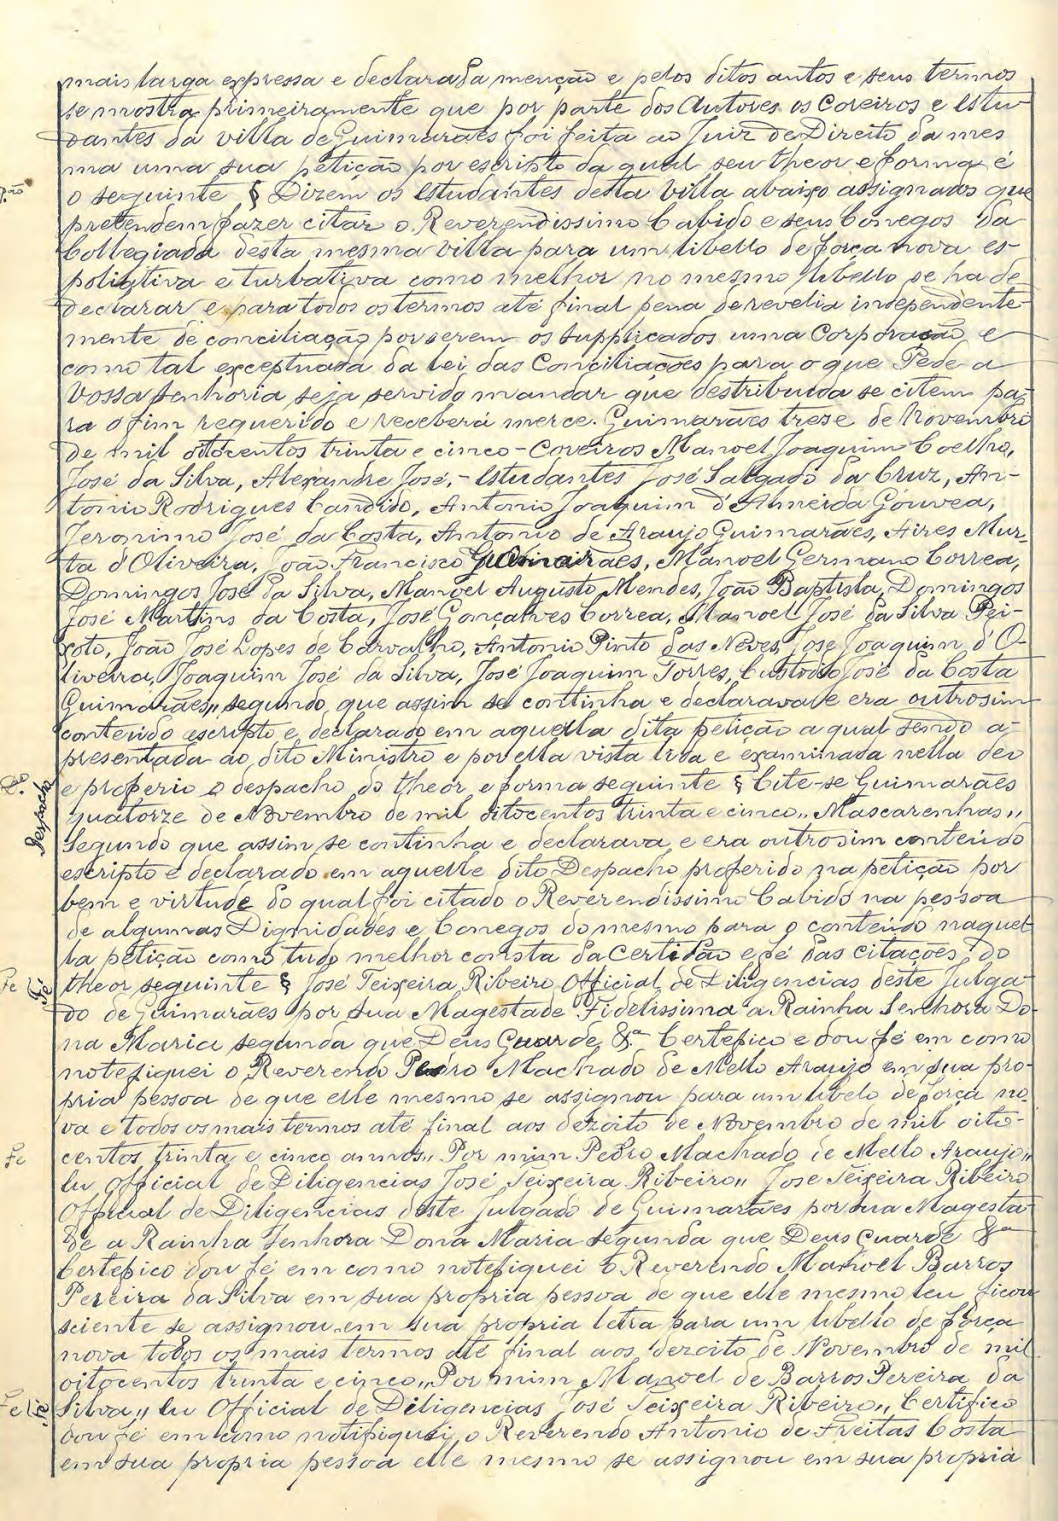 mais larga expressa e declarada menção e pelos ditos autos e seus termos
se mostra primeiramente que por parte dos Autores os Coreiros e Estu-
dantes da villa de Guimarães foi feita ao Juiz de Direito da mes
ma uma sua petição por escripto da qual seu theor e forma é
o seguinte § Dizem os Estudantes desta Villa abaixo assignados que
pretendem fazer citar o Reverendissimo Cabido e seus Conegos da
Collegiada desta mesma Villa para um libello de força nova es-
poliativa e turbativa como melhor no mesmo libello se ha de
declarar e para todos os termos até final pena de revelia independente-
mente de conciliação por serem os supplicados uma Corporação e
como tal exceptuada da lei das Conciliações para o que Pede a
Vossa Senhoria seja servido mandar que destribuida se citem pa-
ra o fim requerido e receberá merce. Guimarães trese de Novembro
de mil oitocentos trinta e cinco - Coreiros Manoel Joaquim Coelho,
José da Silva, Alexandre José, - Estudantes José Salgado da Cruz, An-
tonio Rodrigues Candido, Antonio Joaquim d'Almeida Gouvea,
Jeronimo José da Costa, Antonio de Araujo Guimarães, Aires Mur-
ta d'Oliveira, João Francisco Guimarães, Manoel Germano Correa,
Domingos José da Silva, Manoel Augusto Mendes, João Baptista, Domingos
José Martins da Costa, José Gonçalves Correa, Manoel José da Silva Pei-
xoto, João José Lopes de Carvalho, Antonio Pinto das Neves, José Joaquim d'O-
liveira, Joaquim José da Silva, José Joaquim Torres, Custodio José da Costa
Guimarães,, segundo que assim se continha e declarava e era outrosim
conteúdo escripto e declarado em aquella dita petição a qual sendo a-
presentada ao dito Ministro e por ella vista lida e examinada nella deo
Dº. Despacho e proferio o despacho do theor e forma seguinte § Cite-se Guimarães
quatorze de Novembro de mil oitocentos trinta e cinco,, Mascarenhas,,
Segundo que assim se continha e declarava e era outrosim conteúdo
escripto e declarado em aquelle dito Despacho proferido na petição por
bem e virtude do qual foi citado o Reverendissimo Cabido na pessoa
de algumas Dignidades e Conegos do mesmo para o conteúdo naquel-
la petição como tudo melhor consta da certidão e fé das citações do
Fe Fé theor seguinte § José Teixeira Ribeiro Official de Diligencias deste Julga-
do de Guimarães por sua Magestade Fidelissima a Rainha Senhora Do-
na Maria segunda que Deus Guarde &ª Certefico e dou fé em como
notefiquei o Reverendo Pedro Machado de Mello Araujo em sua pro-
pria pessoa de que elle mesmo se assignou para um libelo de força no-
va e todos os mais termos até final aos dezoito de Novembro de mil oito-
Fe centos trinta e cinco annos,, Por mim Pedro Machado de Mello Araujo,,
Eu Official de Diligencias José Teixeira Ribeiro,, José Teixeira Ribeiro
Official de Diligencias deste Julgado de Guimarães por sua Magesta-
de a Rainha Senhora Dona Maria segunda que Deus Guarde &ª
Certefico dou fé em como notefiquei o Reverendo Manoel Barros
Pereira da Silva em sua propria pessoa de que elle mesmo leu ficou
sciente se assignou em sua propria letra para um libello de força
nova todos os mais termos até final aos dezoito de Novembro de mil
oitocentos trinta e cinco,, Por mim Manoel de Barros Pereira da
Fe Fé Silva,, Eu Official de Diligencias José Teixeira Ribeiro,, Certifico
dou fé em como notifiquei o Reverendo Antonio de Freitas Costa
em sua propria pessoa elle mesmo se assignou em sua propria